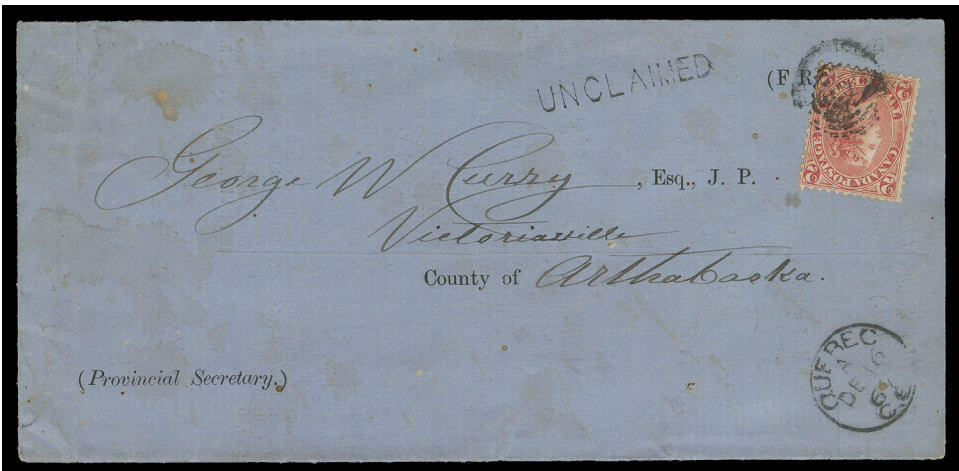 UNCLAIMED
(F R
George W Curry , Esq., J. P.
Victoriaville
County of Arthabaska.
(Provincial Secretary.)
2 2
CANADA POSTAGE
2 2
QUEBEC
A
DE 16
C.E